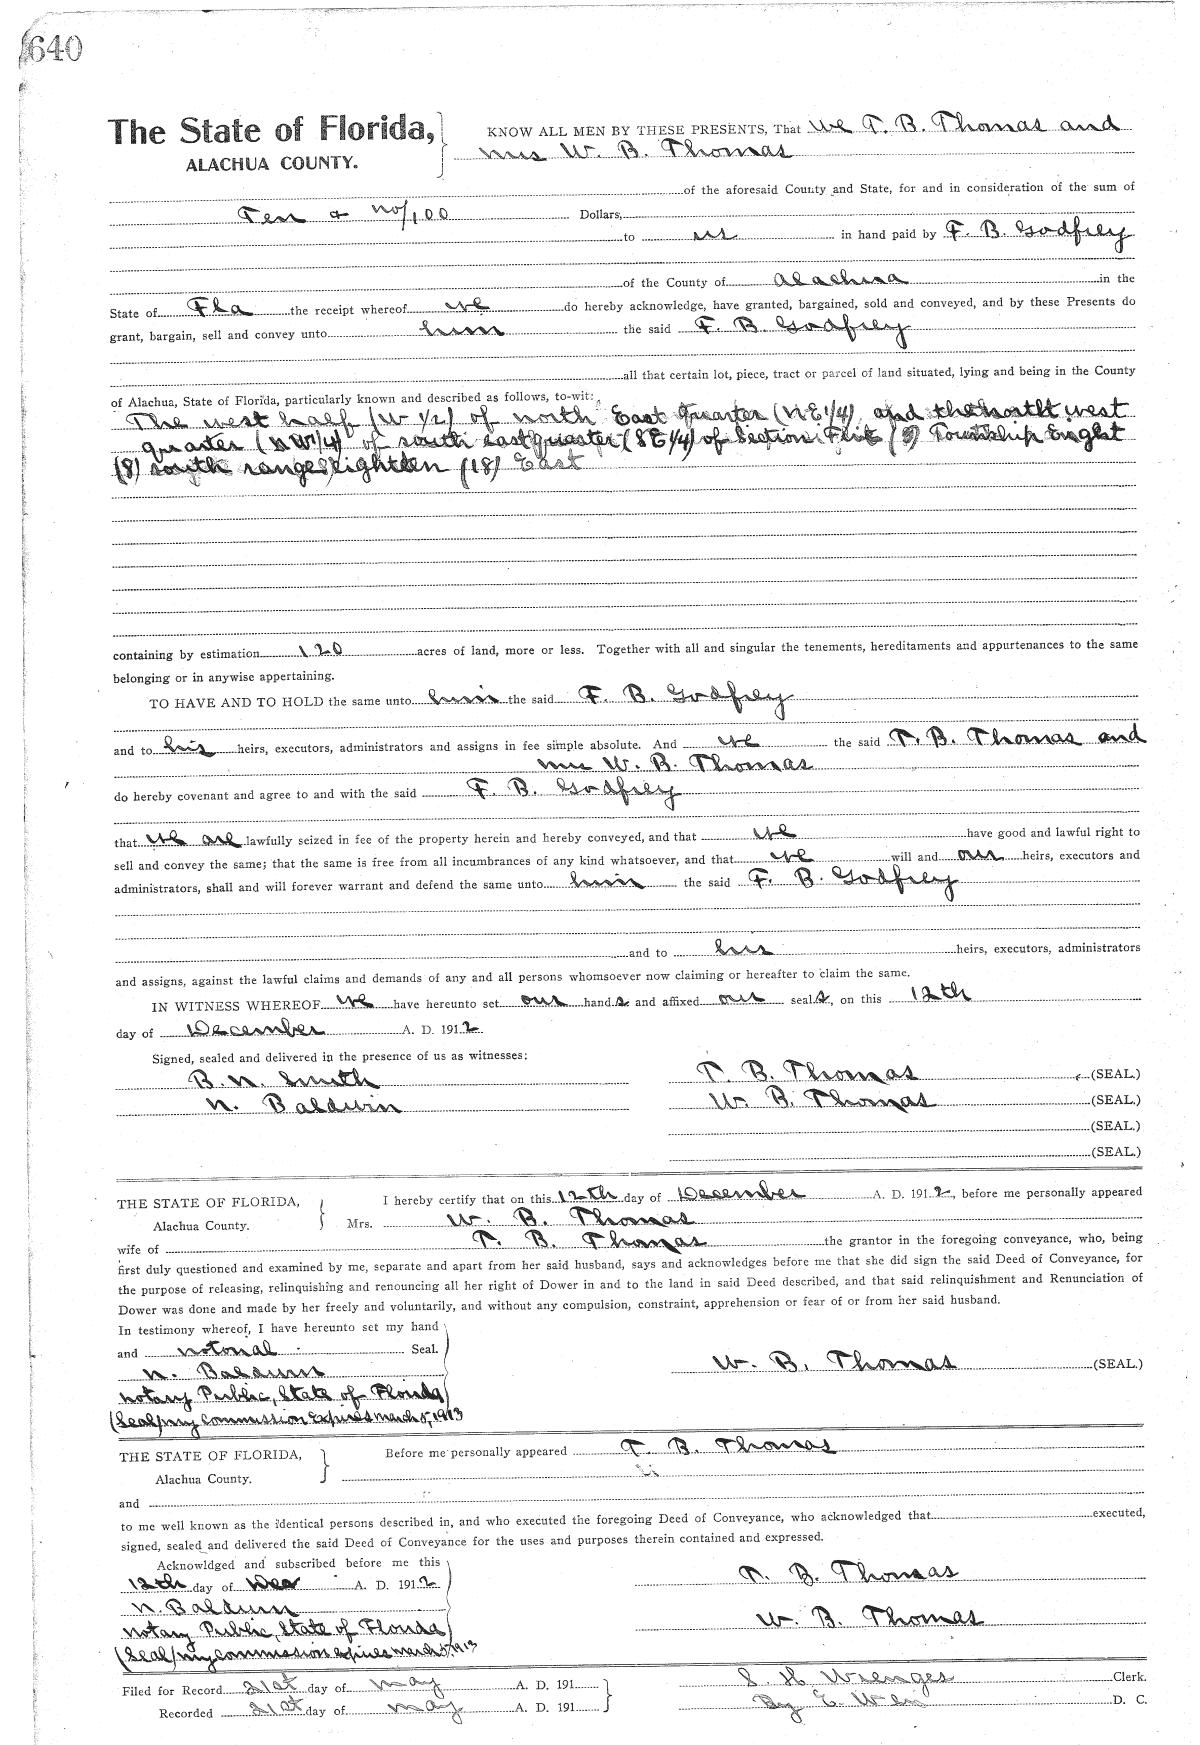 640
The State of Florida, KNOW ALL MEN BY THESE PRESENTS, That we T. B. Thomas and
ALACHUA COUNTY. mrs W. B. Thomas
of the aforesaid County and State, for and in consideration of the sum of
Ten & no/100 Dollars,
to us in hand paid by F. B. Godfrey
of the County of Alachua in the
State of Fla the receipt whereof we do hereby acknowledge, have granted, bargained, sold and conveyed, and by these Presents do
grant, bargain, sell and convey unto him the said F. B. Godfrey
all that certain lot, piece, tract or parcel of land situated, lying and being in the County
of Alachua, State of Florida, particularly known and described as follows, to-wit:
The west half (W 1/2) of north East quarter (NE1/4) and the north west
quarter (NW1/4) of south east quarter (SE1/4) of Section Township Eight
(8) south range eighteen (18) East
containing by estimation 120 acres of land, more or less. Together with all and singular the tenements, hereditaments and appurtenances to the same
belonging or in anywise appertaining.
TO HAVE AND TO HOLD the same unto him the said F. B. Godfrey
and to his heirs, executors, administrators and assigns in fee simple absolute. And we the said T. B. Thomas and
mrs W. B. Thomas
do hereby covenant and agree to and with the said F. B. Godfrey
that we are lawfully seized in fee of the property herein and hereby conveyed, and that we have good and lawful right to
sell and convey the same; that the same is free from all incumbrances of any kind whatsoever, and that we will and our heirs, executors and
administrators, shall and will forever warrant and defend the same unto him the said F. B. Godfrey
and to his heirs, executors, administrators
and assigns, against the lawful claims and demands of any and all persons whomsoever now claiming or hereafter to claim the same.
IN WITNESS WHEREOF we have hereunto set our hand s and affixed our seal s, on this 12th
day of December A. D. 191 2
Signed, sealed and delivered in the presence of us as witnesses:
B. N. Smith T. B. Thomas (SEAL.)
N. Baldwin W. B. Thomas (SEAL.)
(SEAL.)
(SEAL.)
THE STATE OF FLORIDA, I hereby certify that on this 12th day of December A. D. 191 2, before me personally appeared
Alachua County. Mrs. W. B. Thomas
wife of T. B. Thomas the grantor in the foregoing conveyance, who, being
first duly questioned and examined by me, separate and apart from her said husband, says and acknowledges before me that she did sign the said Deed of Conveyance, for
the purpose of releasing, relinquishing and renouncing all her right of Dower in and to the land in said Deed described, and that said relinquishment and Renunciation of
Dower was done and made by her freely and voluntarily, and without any compulsion, constraint, apprehension or fear of or from her said husband.
In testimony whereof, I have hereunto set my hand
and notorial Seal.
N. Baldwin W. B. Thomas (SEAL.)
notary Public, State of Florida
(Seal) my commission Expires march 5, 1913
THE STATE OF FLORIDA, Before me personally appeared T. B. Thomas
Alachua County.
and
to me well known as the identical persons described in, and who executed the foregoing Deed of Conveyance, who acknowledged that executed,
signed, sealed and delivered the said Deed of Conveyance for the uses and purposes therein contained and expressed.
Acknowldged and subscribed before me this
12th day of Dec A. D. 191 2 T. B. Thomas
N. Baldwin
notary Public, State of Florida W. B. Thomas
(Seal) my commission expires march 5, 1913
Filed for Record 21st day of may A. D. 191 S. H. Wienges Clerk.
Recorded 21st day of may A. D. 191 By E. D. C.